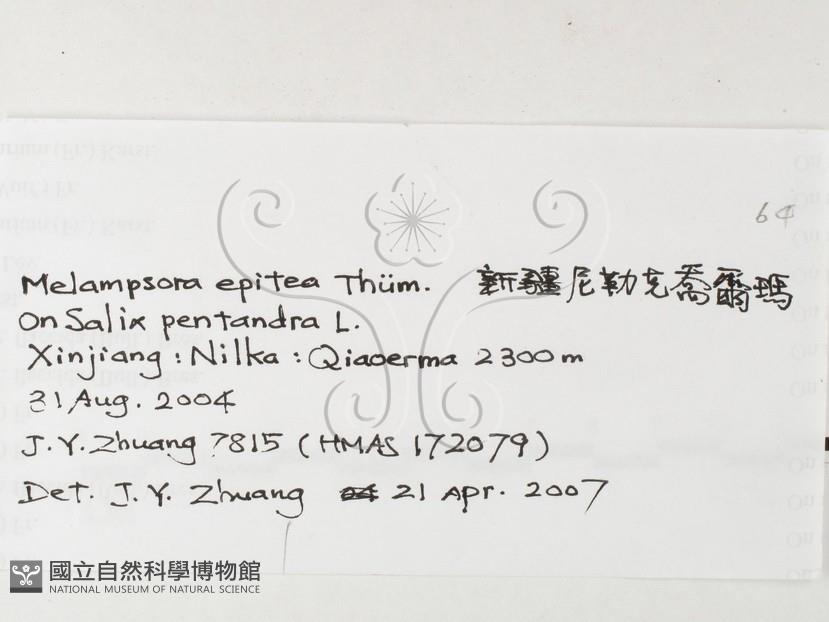 64
Melampsora epitea Thüm. 新疆尼勒克喬爾瑪
On Salix pentandra L.
Xinjiang : Nilka : Qiaoerma 2300 m
31 Aug. 2004
J. Y. Zhuang 7815 (HMAS 172079)
Det. J. Y. Zhuang 21 Apr. 2007
國立自然科學博物館
NATIONAL MUSEUM OF NATURAL SCIENCE